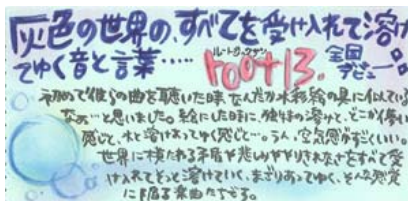 灰色の世界の、すべてを受け入れて溶け
てゆく音と言葉‥‥‥
ルートサーティーン
root13.
全国デビュー品
初めて彼らの曲を聴いた時、なんだか水彩絵の具に似ている
なぁ…と思いました。絵にした時に、独特の溶けて、どこか儚い
感じで、水と溶けあってゆく感じで…。うん、空気感がすごくいい。
世界に横たわる矛盾や悲しみややりきれなさをすべて受
け入れてそっと溶けていく、まざりあってゆく、そんな感覚
に陥る楽曲たちです。